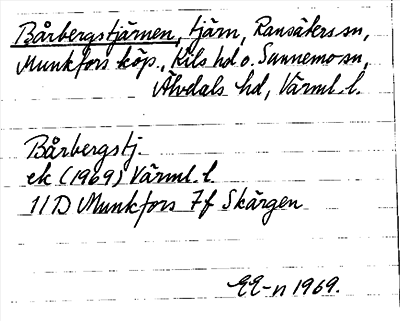 Bårbergstjärnen, tjärn, Ransäters sn,
Munkfors köp., Kils hd o. Sunnemo sn,
Älvdals hd, Värml. l.
Bårbergstj.
ek (1969) Värml. l.
11 D Munkfors 7f Skärgen
EE-n 1969.